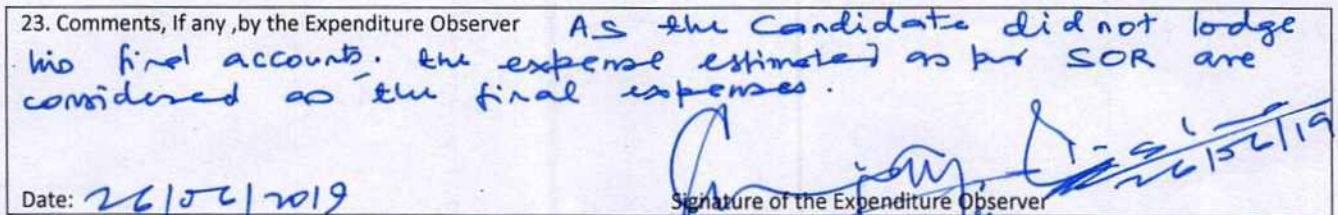 23. Comments, If any ,by the Expenditure Observer As the Candidate did not lodge
his final accounts. the expense estimated as per SOR are
considered as the final expenses.
26/06/19
Date: 26/06/2019 Signature of the Expenditure Observer